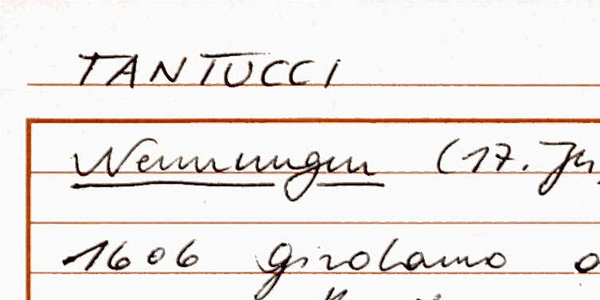 TANTUCCI
Nennungen (17. Jh
1606 Girolamo